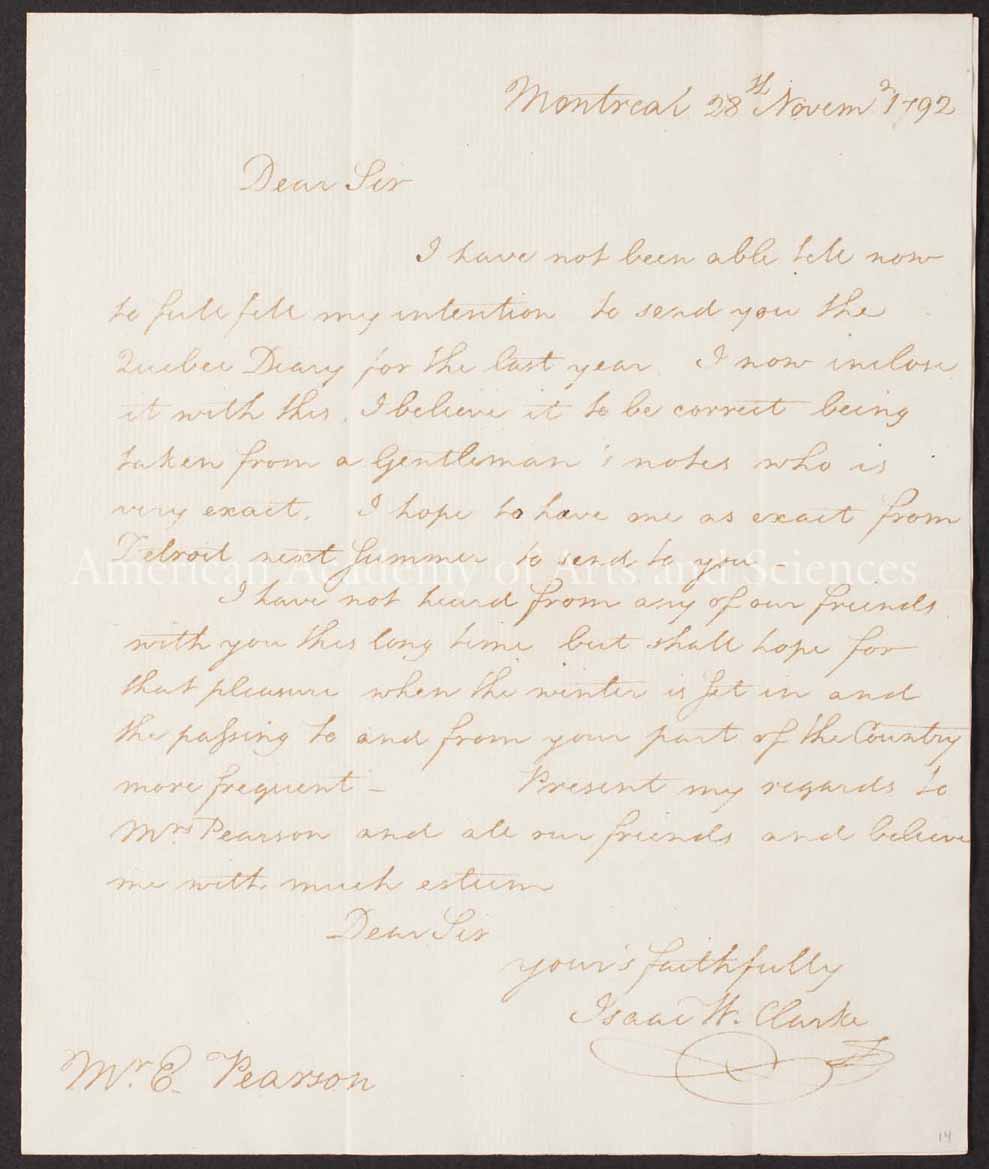 Montreal 28th Novemr 1792
Dear Sir
I have not been able till now
to full fill my intention to send you the
Quebec Diary for the last year. I now inclose
it with this. I believe it to be correct being
taken from a Gentleman's notes who is
very exact. I hope to have me as exact from
Detroit next Summer to send to you
American Academy of Arts and Sciences
I have not heard from any of our friends
with you this long time but shall hope for
that pleasure when the winter is set in and
the passing to and from your part of the Country
more frequent –
Present my regards to
Mrs Pearson and all our friends and believe
me with much esteem
Dear Sir
your's faithfully
Isaac W. Clarke
Mr. E. Pearson
14